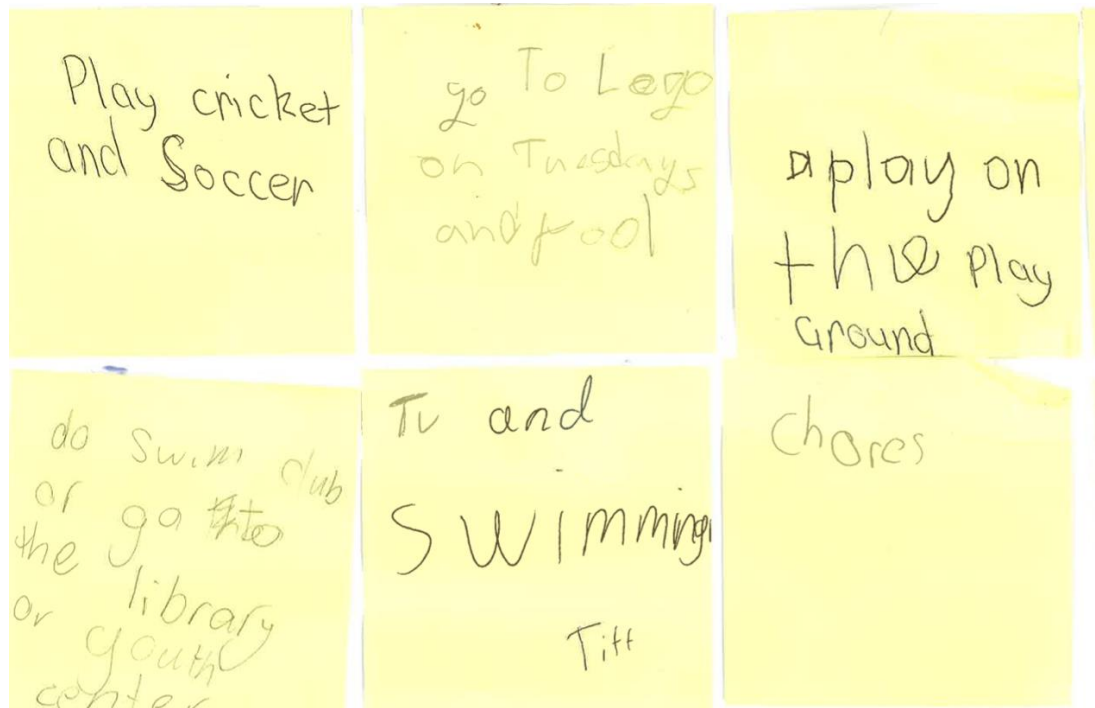 Play cricket
and Soccer
go To Lego
on Tuesdays
and pool
play on
the Play
around
do swim club
or go to
the library
or youth
center
Tv and
swimming
chores